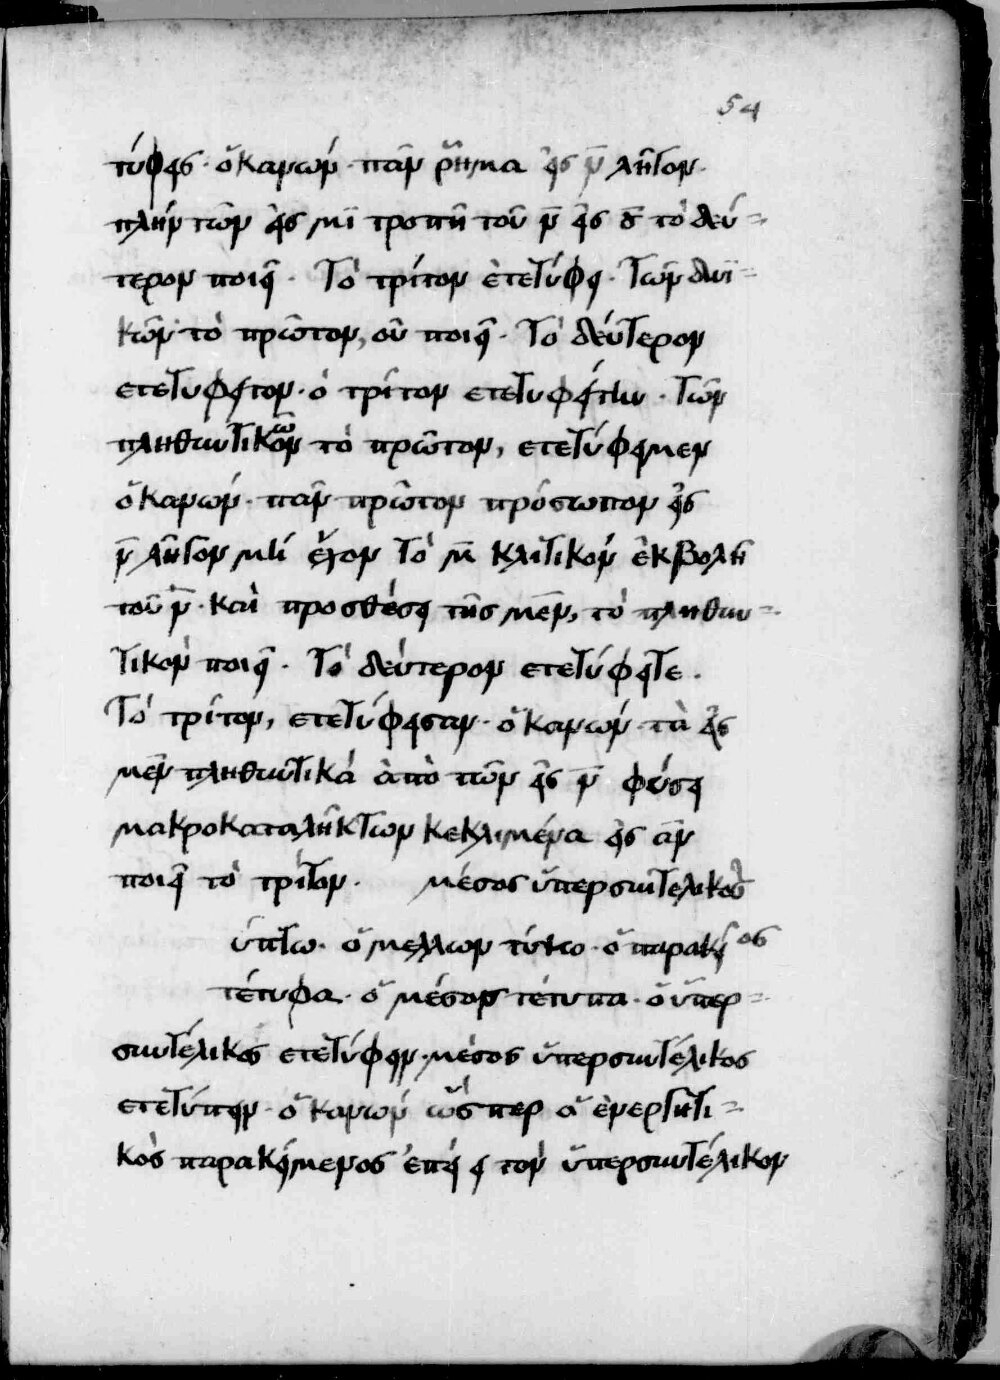 54
τύφεις· ὁ κανών· πᾶν ῥῆμα εἰς ν̄ λῆγον·
πλὴν τῶν εἰς μϊ τροπῇ τοῦ ν̄ εἰς σ̄ τὸ δεύ=
τερον ποιεῖ· Τὸ τρίτον ἐτετύφει· Τῶν δυϊ=
κῶν τὸ πρῶτον, οὐ ποιεῖ· Τὸ δεύτερον
ετετυφειτον· ὁ τρίτον ετετυφείτην· Τῶν
πληθυντικῶν τὸ πρῶτον, ετετύφειμεν
ὁ κανών· πᾶν πρῶτον πρόσωπον εἰς
ν̄ λῆγον μὴ ἔχον τὸ μ̄ κλιτικὸν ἐκβολῆ
τοῦ ν̄· καὶ προσθέσει τῆς μεν, τὸ πληθυν=
τικὸν ποιεῖ· Τὸ δεύτερον ετετύφειτε·
Τὸ τρίτον, ετετύφεισαν· ὁ κανών· τὰ εἰς
μεν πληθυντικὰ ἀπὸ τῶν εἰς ν̄ φύσει
μακροκαταλήκτων κεκλιμένα εἰς αν
ποιεῖ τὸ τρίτον· μέσος ὑπερσυντελικοῦ
ύπτω· ὁ μελλων τύψω· ὁ παρακείος
τέτυφα· ὁ μέσος τέτυπα· ὁ ὑπερ=
συντέλικος ετετύφειν· μέσος ὑπερσυντέλικος
ετετύπειν· ὁ κανών ὥσπερ ὁ ἐνεργητι=
κὸς παρακείμενος ἐποίει τὸν ὑπερσυντέλικον